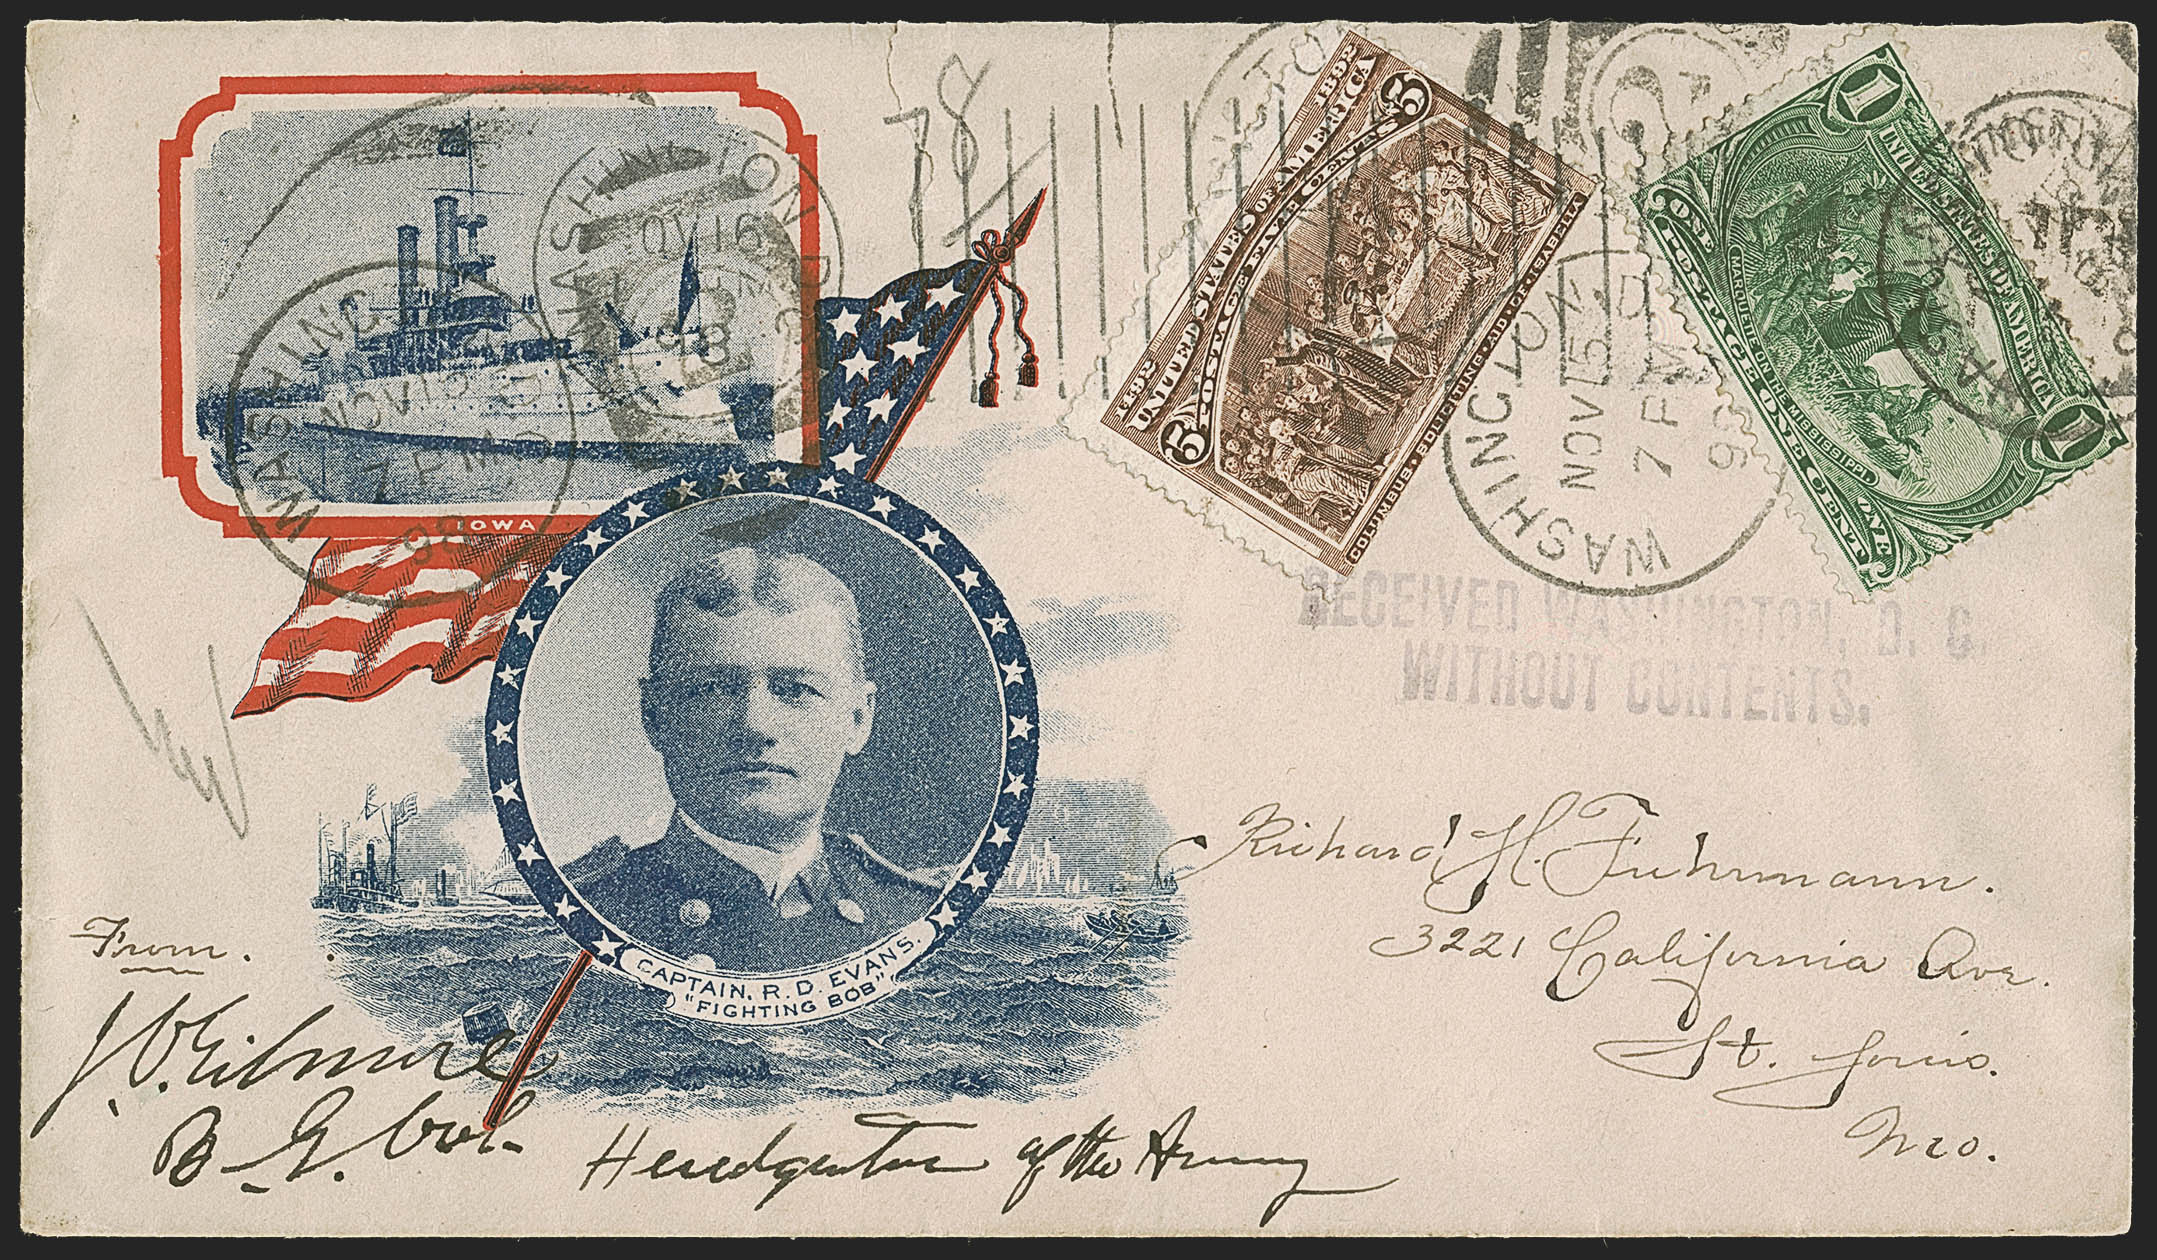 IOWA
CAPTAIN. R. D. EVANS.
"FIGHTING BOB"
78
1892 UNITED STATES OF AMERICA 1892
5 POSTAGE FIVE CENTS 5
COLUMBUS · SOLICITING · AID · OF · ISABELLA
1 UNITED STATES OF AMERICA 1
MARQUETTE ON THE MISSISSIPPI.
ONE POSTAGE ONE CENT ONE
WASHINGTON, D
NOV 16
98
WASHINGTON, D
NOV 15
7 PM
98
WASHINGTON, D
NOV 15
7 PM
98
RECEIVED WASHINGTON, D. C.
WITHOUT CONTENTS.
Richard H. Fuhrmann.
3221 California Ave.
St. Louis.
Mo.
From.
J. C. Gilmore
B. G. Vols.
Headquarters of the Army